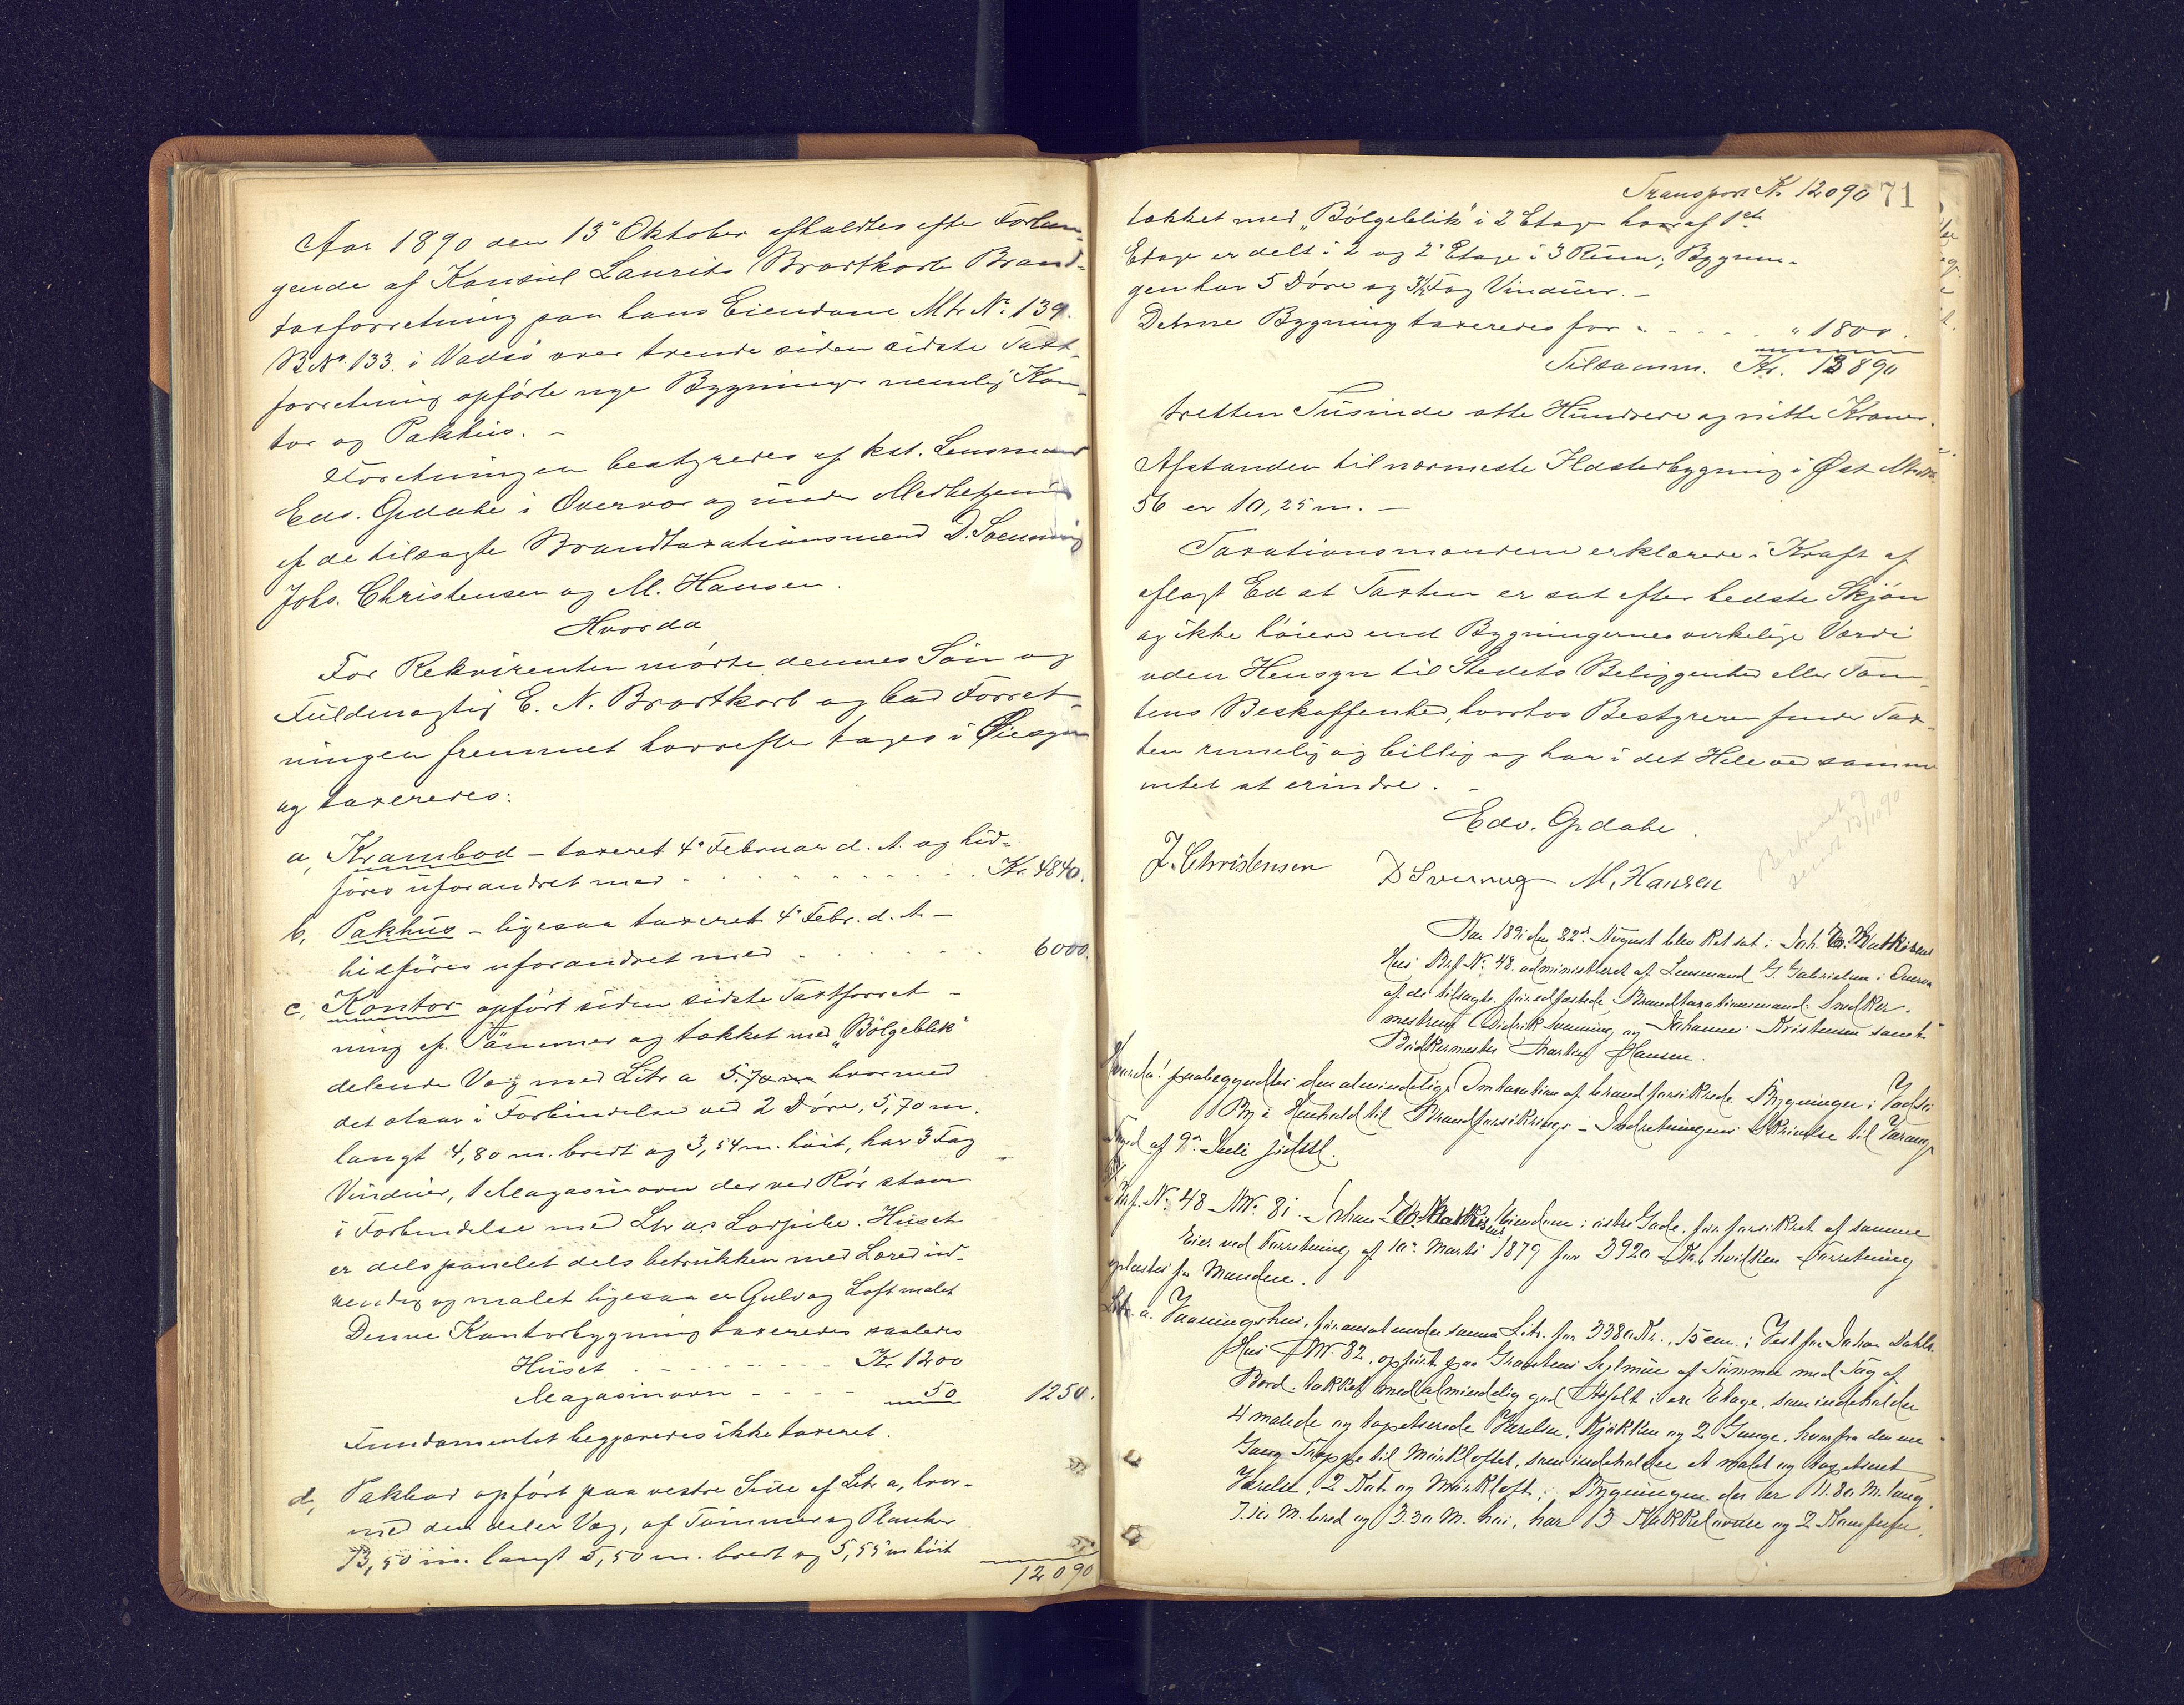 Aar 1890 den 13de Oktober afholdtes efter Forlan-
gende af Konsul Laurits Brodtkorb Brand-
taxforretning paa hans Eiendom Mtr No 139.
B.No 133. i Vadsö over trende siden sidste Taxt-
forretning opförte nye Bygninger nemlig Kon-
tor og Pakhus. –
Forretningen bestyredes af kst. Lensmand
Edv. Opdahl i Overvær og under Medbetjening
af de tilsagte Brandtaxationsmænd D. Svenning
Johs. Christensen og M. Hansen.
Hvorda
For Rekvirenten mödte dennes Sön og
Fuldmægtig E. N. Brodtkorb og bad Forret-
ningen fremmet hvorefter toges i Öiesyn
og taxeredes:
a, Krambod – taxeret 4de Februar d. A. og hid-
föres uforandret med - - - - - Kr. 4840.
b, Pakhus – ligesaa taxeret 4de Febr. d. A –
hidföres uforandret med - - - - - 6000.
c, Kontor opfört siden sidste Taxtforret-
ning af Tömmer og tækket med „Bölgeblik"
delende Væg med Litr a 5,70 m hvormed
det staar i Forbindelse ved 2 Döre, 5,70 m.
langt 4,80 m. bredt og 3,54 m. höit, har 3 Fag
Vinduer, 1 Magasinovn der ved Rör staar
i Forbindelse med Litr as Lorpibe. Huset
er dels panelet dels betrukken med Lærred ind-
vendig og malet ligesaa er Gulv og Loft malet
Denne Kontorbygning taxeredes saaledes
Huset - - - - - - Kr. 1200
Magasinovn - - - - 50 1250.
Fundamentet begjæredes ikke taxeret.
d, Pakbod opfört paa vestre Side af Litr a, hvor-
med den deler Væg, af Tömmer og Planker
13,50 m. langt 5,50 m. bredt og 5,55 m höit
12090
Transport Kr. 12090 71
tækket med „Bölgeblik" i 2 Etager hvoraf 1ste
Etage er delt i 2 og 2de Etage i 3 Rum; Bygnin-
gen har 5 Döre og 3½ Fag Vinduer. –
Denne Bygning taxeredes for - - - - „ 1800.
Tilsamm. Kr. 13890
tretten Tusinde otte Hundrede og nitti Kroner.
Afstanden til nærmeste Ildstedbygning i Öst Mtr No
56 er 10,25 m. –
Taxationsmændene erklærede i Kraft af
aflagt Ed at Taxten er sat efter bedste Skjön
og ikke höiere end Bygningernes virkelige Værdi
uden Hensyn til Stedets Beliggenhed eller Tom-
tens Beskaffenhed, hvorhos Bestyreren finder Tax-
ten rimelig og billig og har i det Hele ved samme
intet at erindre. –
Edv. Opdahl.
J. Christensen D Svenning M. Hansen
sendt 13/11 90
Aar 1891 den 22de August blev Ret sat i Joh.
Hus Brf. No 48. administreret af Lensmand G. Gabrielsen i Overvær
af de tilsagte forud fæstede Brandtaxationsmænd Snedker-
mestrene Didrik Svenning og Johannes Kristensen samt
Bödkermester Martin Hansen.
Hvorda! paabegyndtes den almindelige Omtaxation af brandforsikrede Bygninger i Vadsö
By i Henhold til Brandforsikrings-Indretningens Skrivelse til Varanger
Fogd af 9de Juli sidstl.
Brf. No 48 M.No 81. Johan Eiendom i östre Gade. för forsikret af samme
Eier ved Forretning af 10de Marts 1879 for 3920 Kr., hvilken Forretning
oplæstes for Mændene.
Litr. a. Vaaningshus, för ansat under samme Litr. for 3380 Kr., 15 cm. i Vest fra Johan Dahls
Hus M.No 82, opfört paa Graastens Sylmur af Tömmer med Tag af
Bord. tækket med almindelig god Asfalt i en Etage, som indeholder
4 malede og tapetserede Værelser, Kjökken og 2 Gange, hvorfra den ene
Gang Trappe til Mörkloftet, som indeholder et malet og tapetseret
Værelse, 2 Kot og Mörkloft; Bygningen der er 11.80 M. lang
M. bred og 3.30 M. höi, har 3 Kakkelovne og 2 Komfurer,